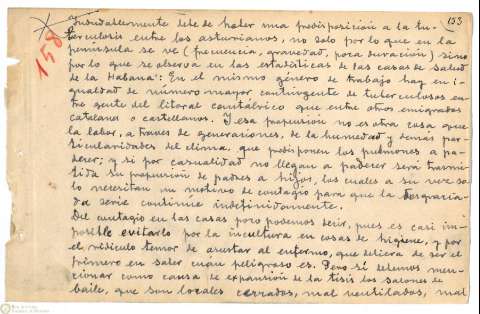 153
158
Indudablemente debe de haber una predisposición a la tu-
berculosis entre los asturianos, no solo por lo que en la
península se ve (frecuencia, gravedad, poca duración) sino
por lo que se observa en las estadísticas de las casas de salud
de la Habana: En el mismo género de trabajo hay en i-
gualdad de número mayor contingente de tuberculosos en-
tre gente del litoral cantábrico que entre otros emigrados
catalana o castellanos. Y esa propensión no es otra cosa que
la labor, a traves de generaciones, de la humedad y demás par-
ticularidades del clima, que predisponen los pulmones a pa-
decer; y si por casualidad no llegan a padecer será trasmi-
tida su propensión de padres a hijos, los cuales a su vez so-
lo necesitan un motivo de contagio para que la desgracia-
da serie continúe indefinidamente.
Del contagio en las casas poco podemos decir, pues es casi im-
posible evitarlo por la incultura en cosas de higiene, y por
el ridículo temor de asustar al enfermo, que debiera de ser el
primero en saber cuan peligroso es. Pero si debemos men-
cionar como causa de expansión de la tisis los salones de
baile, que son locales cerrados, mal ventilados, mal